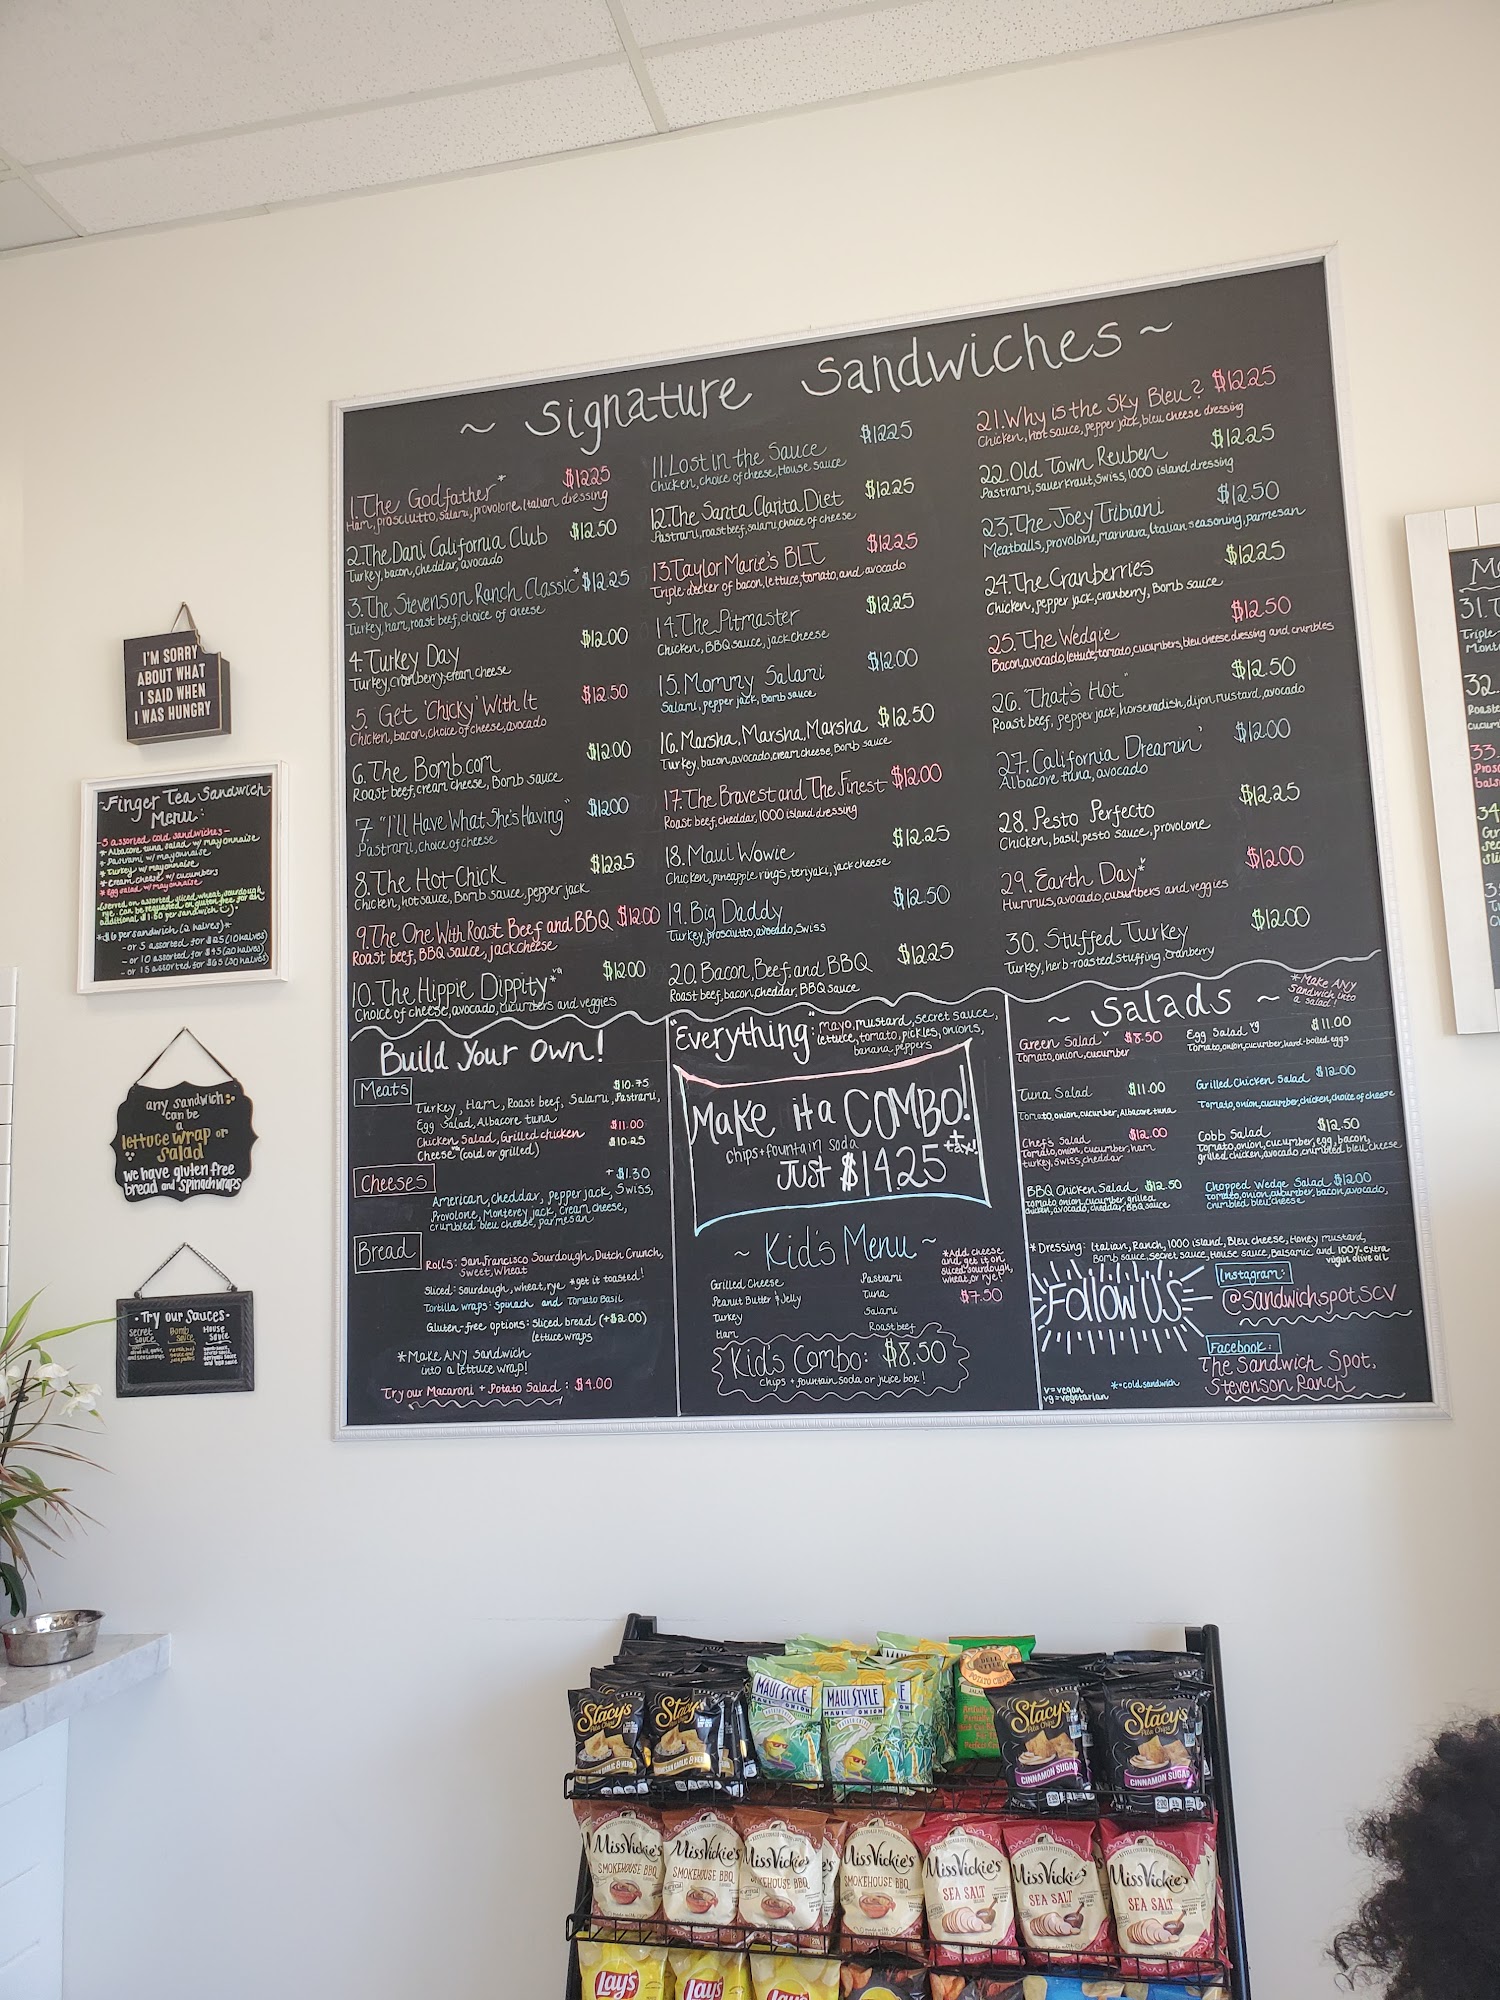 ~ Signature Sandwiches ~
1. The Godfather* $12.25
Ham, prosciutto, salami, provolone, Italian dressing
2. The Dani California Club $12.50
Turkey, bacon, cheddar, avocado
3. The Stevenson Ranch Classic* $12.25
Turkey, ham, roast beef, choice of cheese
4. Turkey Day $12.00
Turkey, cranberry, cream cheese
5. Get 'Chicky' With It $12.50
Chicken, bacon, choice of cheese, avocado
6. The Bomb.com $12.00
Roast beef, cream cheese, Bomb sauce
7. "I'll Have What She's Having" $12.00
Pastrami, choice of cheese
8. The Hot Chick $12.25
Chicken, hot sauce, Bomb sauce, pepper jack
9. The One With Roast Beef and BBQ $12.00
Roast beef, BBQ sauce, jack cheese
10. The Hippie Dippity*vg $12.00
Choice of cheese, avocado, cucumbers and veggies
11. Lost In the Sauce $12.25
Chicken, choice of cheese, House sauce
12. The Santa Clarita Diet $12.25
Pastrami, roast beef, salami, choice of cheese
13. Taylor Marie's BLT $12.25
Triple decker of bacon, lettuce, tomato, and avocado
14. The Pitmaster $12.25
Chicken, BBQ sauce, jack cheese
15. Mommy Salami $12.00
Salami, pepper jack, Bomb sauce
16. Marsha, Marsha, Marsha $12.50
Turkey, bacon, avocado, cream cheese, Bomb sauce
17. The Bravest and The Finest $12.00
Roast beef, cheddar, 1000 island dressing
18. Maui Wowie $12.25
Chicken, pineapple rings, teriyaki, jack cheese
19. Big Daddy $12.50
Turkey, prosciutto, avocado, Swiss
20. Bacon, Beef, and BBQ $12.25
Roast beef, bacon, cheddar, BBQ sauce
21. Why is the Sky Bleu? $12.25
Chicken, hot sauce, pepper jack, bleu cheese dressing
22. Old Town Reuben $12.25
Pastrami, sauerkraut, Swiss, 1000 island dressing
23. The Joey Tribiani $12.50
Meatballs, provolone, marinara, Italian seasoning, parmesan
24. The Cranberries $12.25
Chicken, pepper jack, cranberry, Bomb sauce
25. The Wedgie $12.50
Bacon, avocado, lettuce, tomato, cucumbers, bleu cheese dressing and crumbles
26. "That's Hot" $12.50
Roast beef, pepper jack, horseradish, dijon mustard, avocado
27. California Dreamin' $12.00
Albacore tuna, avocado
28. Pesto Perfecto $12.25
Chicken, basil pesto sauce, provolone
29. Earth Day*v $12.00
Hummus, avocado, cucumbers and veggies
30. Stuffed Turkey $12.00
Turkey, herb-roasted stuffing, cranberry
Build Your Own!
Meats $10.75
Turkey, Ham, Roast beef, Salami, Pastrami,
Egg Salad, Albacore tuna
Chicken Salad, Grilled chicken $11.00
Cheese vg (cold or grilled) $10.25
Cheeses + $1.30
American, cheddar, pepper jack, Swiss,
Provolone, Monterey jack, cream cheese,
crumbled bleu cheese, parmesan
Bread
Rolls: San Francisco Sourdough, Dutch Crunch,
sweet, wheat
Sliced: sourdough, wheat, rye *get it toasted!
Tortilla wraps: spinach and Tomato Basil
Gluten-free options: sliced bread (+$2.00)
lettuce wraps
*Make ANY sandwich
into a lettuce wrap!
Try our Macaroni + Potato Salad: $4.00
"Everything": mayo, mustard, secret sauce,
lettuce, tomato, pickles, onions,
banana peppers
Make it a COMBO!
chips + fountain soda
Just $14.25 + tax!
~ Kid's Menu ~
Grilled Cheese
Peanut Butter & Jelly
Turkey
Ham
Pastrami
Tuna
Salami
Roast beef
*Add cheese
and get it on
sliced sourdough,
wheat, or rye!
$7.50
Kid's Combo: $8.50
chips + fountain soda or juice box!
~ Salads ~
*Make ANY
sandwich into
a salad!
Green Salad v $8.50
Tomato, onion, cucumber
Egg Salad vg $11.00
Tomato, onion, cucumber, hard-boiled eggs
Tuna Salad $11.00
Tomato, onion, cucumber, Albacore tuna
Grilled Chicken Salad $12.00
Tomato, onion, cucumber, chicken, choice of cheese
Chef's Salad $12.00
Tomato, onion, cucumber, ham
turkey, swiss, cheddar
Cobb Salad $12.50
Tomato, onion, cucumber, egg, bacon,
grilled chicken, avocado, crumbled bleu cheese
BBQ Chicken Salad $12.50
Tomato, onion, cucumber, grilled
chicken, avocado, cheddar, BBQ sauce
Chopped Wedge Salad $12.00
Tomato, onion, cucumber, bacon, avocado,
crumbled bleu cheese
*Dressing: Italian, Ranch, 1000 island, Bleu cheese, Honey mustard,
Bomb sauce, Secret sauce, House sauce, Balsamic and 100% extra
virgin olive oil
Follow Us
Instagram:
@sandwichspotscv
Facebook:
The Sandwich Spot,
Stevenson Ranch
v = vegan
vg = vegetarian
*= cold sandwich
I'M SORRY
ABOUT WHAT
I SAID WHEN
I WAS HUNGRY
~Finger Tea Sandwich
Menu:
-5 assorted cold sandwiches-
*Albacore tuna salad w/ mayonnaise
*Pastrami w/ mayonnaise
*Turkey w/ mayonnaise
*Cream cheese w/ cucumbers
*Egg salad w/ mayonnaise
(Served on assorted sliced wheat, sourdough,
rye. Can be requested on gluten free for an
additional $1.50 per sandwich)
*$6 per sandwich (2 halves)*
-or 5 assorted for $25 (10 halves)
-or 10 assorted for $45 (20 halves)
-or 15 assorted for $65 (30 halves)
any sandwich
can be
a
lettuce wrap or
salad
we have gluten free
bread and spinach wraps
• Try our Sauces •
Secret
Sauce
Bomb
Sauce
House
Sauce
31.
Triple
32.
33.
34
Stacy's
Pita Chips
Stacy's
MAUI STYLE
MAUI ONION
MAUI STYLE
MAUI ONION
DELI STYLE
POTATO CHIPS
Stacy's
Pita Chips
CINNAMON SUGAR
Stacy's
Pita Chips
CINNAMON SUGAR
Miss Vickie's
SMOKEHOUSE BBQ
Miss Vickie's
SMOKEHOUSE BBQ
Miss Vickie's
SMOKEHOUSE BBQ
Miss Vickie's
SMOKEHOUSE BBQ
Miss Vickie's
SEA SALT
Miss Vickie's
SEA SALT
Miss Vickie's
SEA SALT
Lay's
Lay's
Lay's